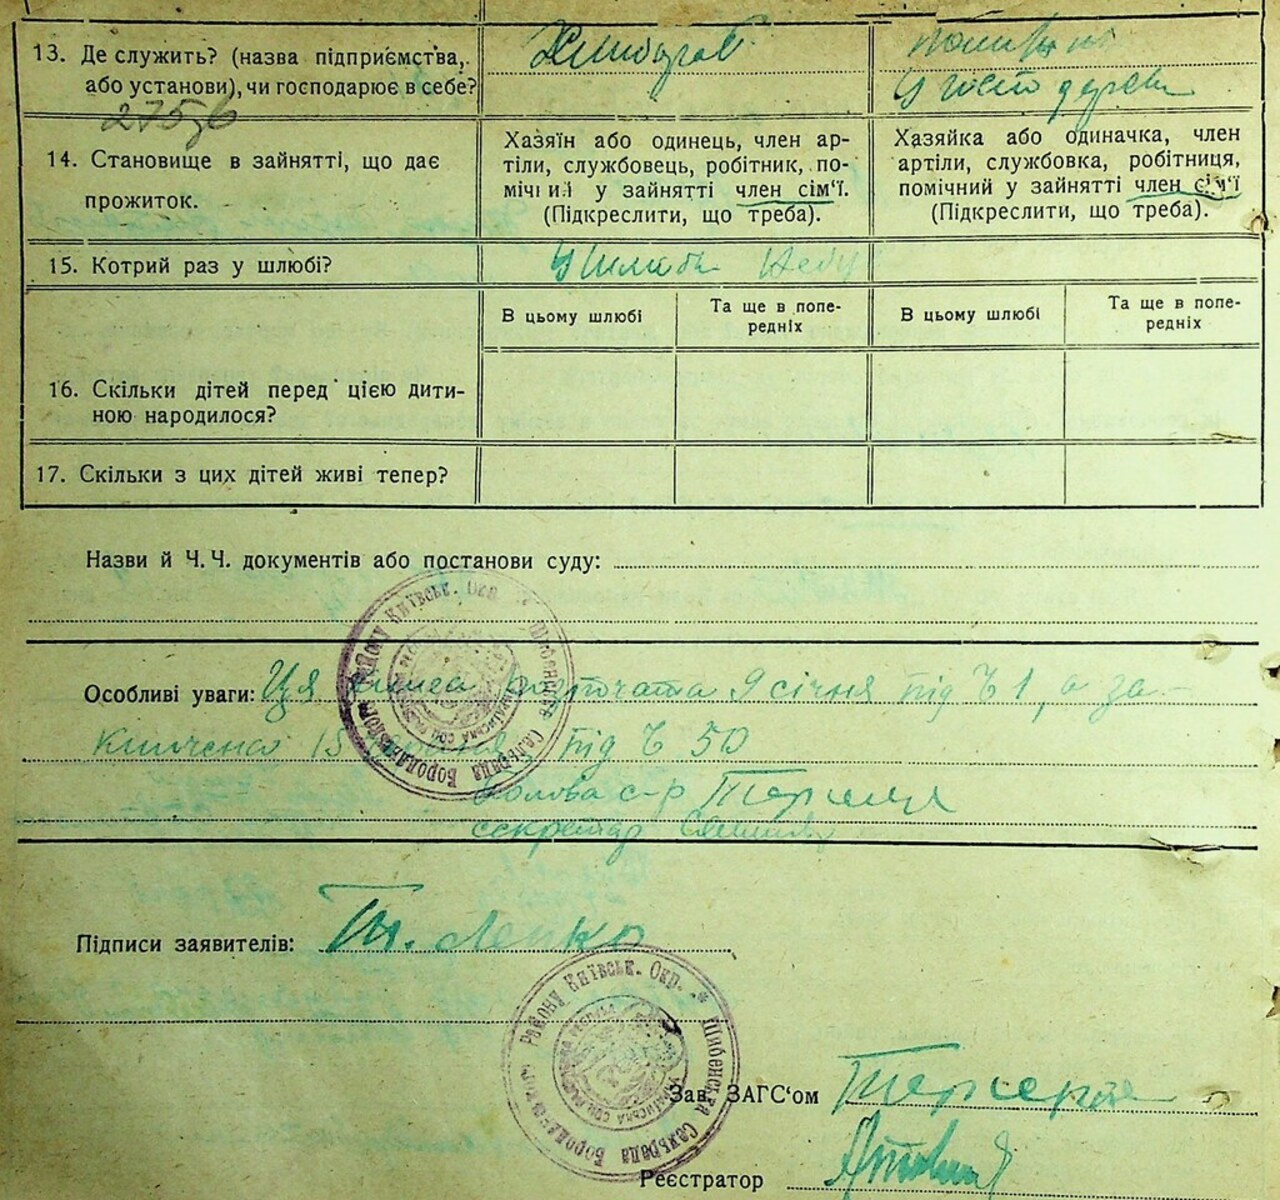 13. Де служить? (назва підприємства,
або установи), чи господарює в себе?
Хлібороб
у господарстві
14. Становище в зайнятті, що дає
прожиток.
Хазяїн або одинець, член ар-
тіли, службовець, робітник, по-
мічний у зайнятті член сім'ї.
(Підкреслити, що треба).
Хазяйка або одиначка, член
артіли, службовка, робітниця,
помічний у зайнятті член сім'ї
(Підкреслити, що треба).
15. Котрий раз у шлюбі?
У шлюбі не
В цьому шлюбі
Та ще в попе-
редніх
В цьому шлюбі
Та ще в попе-
редніх
16. Скільки дітей перед цією дити-
ною народилося?
17. Скільки з цих дітей живі тепер?
Назви й Ч. Ч. документів або постанови суду:
Особливі уваги: Ця книга розпочата 9 січня під Ч 1, а за-
кінчена 15 під Ч 50
Голова с-р
секретар
Підписи заявителів:
Району Київськ. Окр. * Шибенська Сельрада Бородянського
Району Київськ. Окр. * Шибенська Сельрада Бородянського
Зав. ЗАГС'ом
Реєстратор